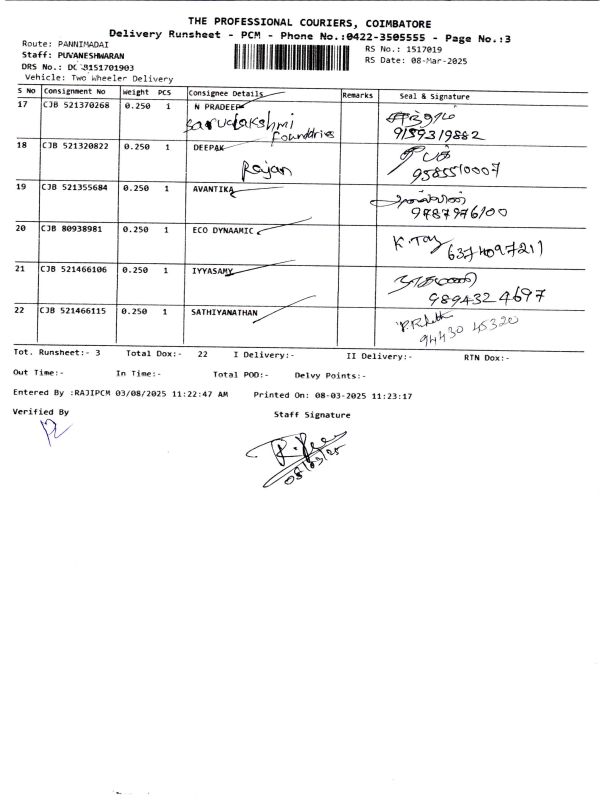 THE PROFESSIONAL COURIERS, COIMBATORE
Delivery Runsheet - PCM - Phone No.:0422-3505555 - Page No.:3
Route: PANNIMADAI
RS No.: 1517019
Staff: PUVANESHWARAN
RS Date: 08-Mar-2025
DRS No.: DC 151701903
Vehicle: Two Wheeler Delivery
S No Consignment No Weight PCS Consignee Details Remarks Seal & Signature
17 CJB 521370268 0.250 1 N PRADEEP
Foundries 9159319882
18 CJB 521320822 0.250 1 DEEPAK தீபக்
Rajan 9585510007
19 CJB 521355684 0.250 1 AVANTIKA
9787976100
20 CJB 80938981 0.250 1 ECO DYNAAMIC
6374097211
21 CJB 521466106 0.250 1 IYYASAMY
9894324697
22 CJB 521466115 0.250 1 SATHIYANATHAN
94430 45320
Tot. Runsheet:- 3 Total Dox:- 22 I Delivery:- II Delivery:- RTN Dox:-
Out Time:- In Time:- Total POD:- Delvy Points:-
Entered By :RAJIPCM 03/08/2025 11:22:47 AM Printed On: 08-03-2025 11:23:17
Verified By Staff Signature
08/03/25